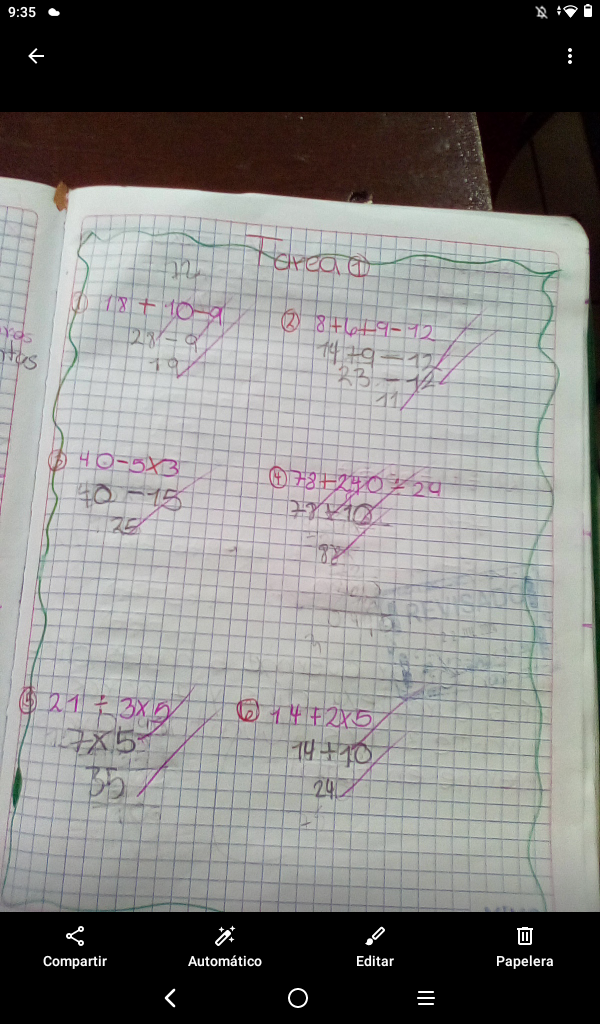 9:35
Tarea 1
22
1 18 + 10 - 9
28 - 9
19
2 8+6+9-12
14+9-12
23 - 12
11
3 40-5x3
40 - 15
25
4 78+240÷24
78+10
88
REVISADO
5 21 ÷ 3x5
7x5
35
6 14+2x5
14+10
24
Compartir
Automático
Editar
Papelera